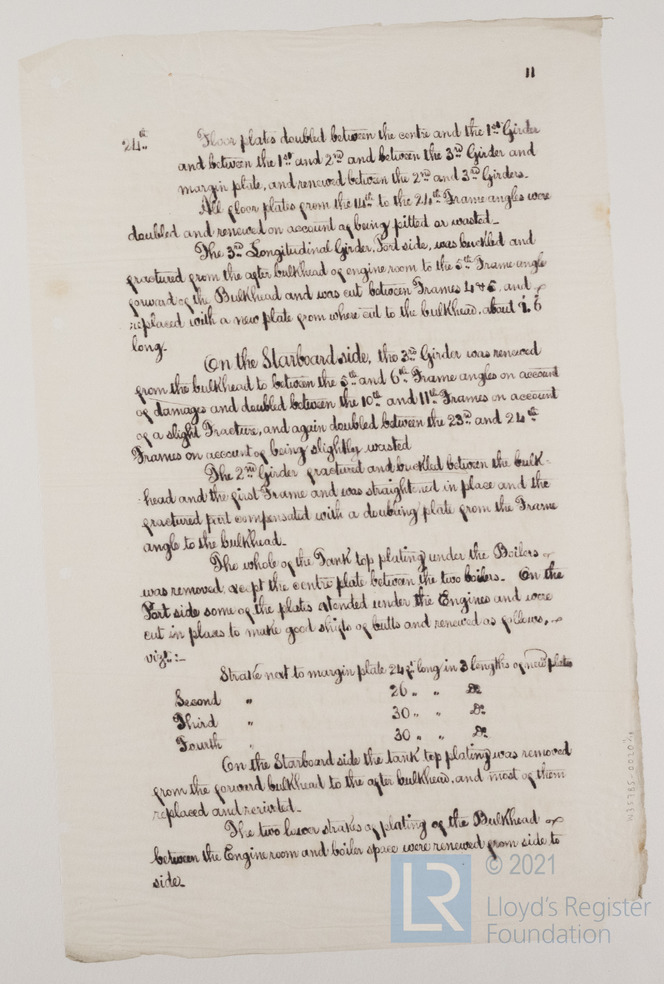 11
24th Floor plates doubled between the centre and the 1st Girder
and between the 1st and 2nd and between the 3rd Girder and
margin plate, and renewed between the 2nd and 3rd Girders.
All floor plates from the 14th to the 24th Frame angles were
doubled and renewed on account of being pitted or wasted.
The 3rd Longitudinal Girder, Port side, was buckled and
fractured from the after bulkhead of engine room to the 5th Frame angle
forward of the Bulkhead and was cut between Frames 4 & 5, and
replaced with a new plate from where cut to the bulkhead, about 6
long.
On the Starboard side, the 3rd Girder was renewed
from the bulkhead to between the 5th and 6th Frame angles on account
of damages and doubled between the 10th and 11th Frames on account
of a slight Fracture, and again doubled between the 23rd and 24th
Frames on account of being slightly wasted
The 2nd Girder fractured and buckled between the bulk-
-head and the first Frame and was straightened in place and the
fractured part compensated with a doubling plate from the Frame
angle to the bulkhead.
The whole of the Tank top plating under the Boilers
was removed, except the centre plate between the two boilers. On the
Port side some of the plates extended under the Engines and were
cut in places to make good shifts of butts and renewed as follows,
vizt:-
Strake next to margin plate 24 ft long in 3 lengths of new plates
Second " 26 " " Do
Third " 30 " " Do
Fourth " 30 " " Do
On the Starboard side the tank top plating was removed
from the forward bulkhead to the after bulkhead, and most of them
replaced and rerivited.
The two lower strakes of plating of the Bulkhead
between the Engine room and boiler space were renewed from side to
side.
© 2021
LR
Lloyd's Register
Foundation